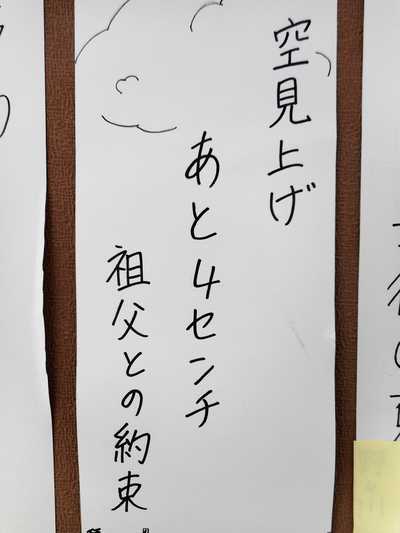 空見上げ
あと4センチ
祖父との約束